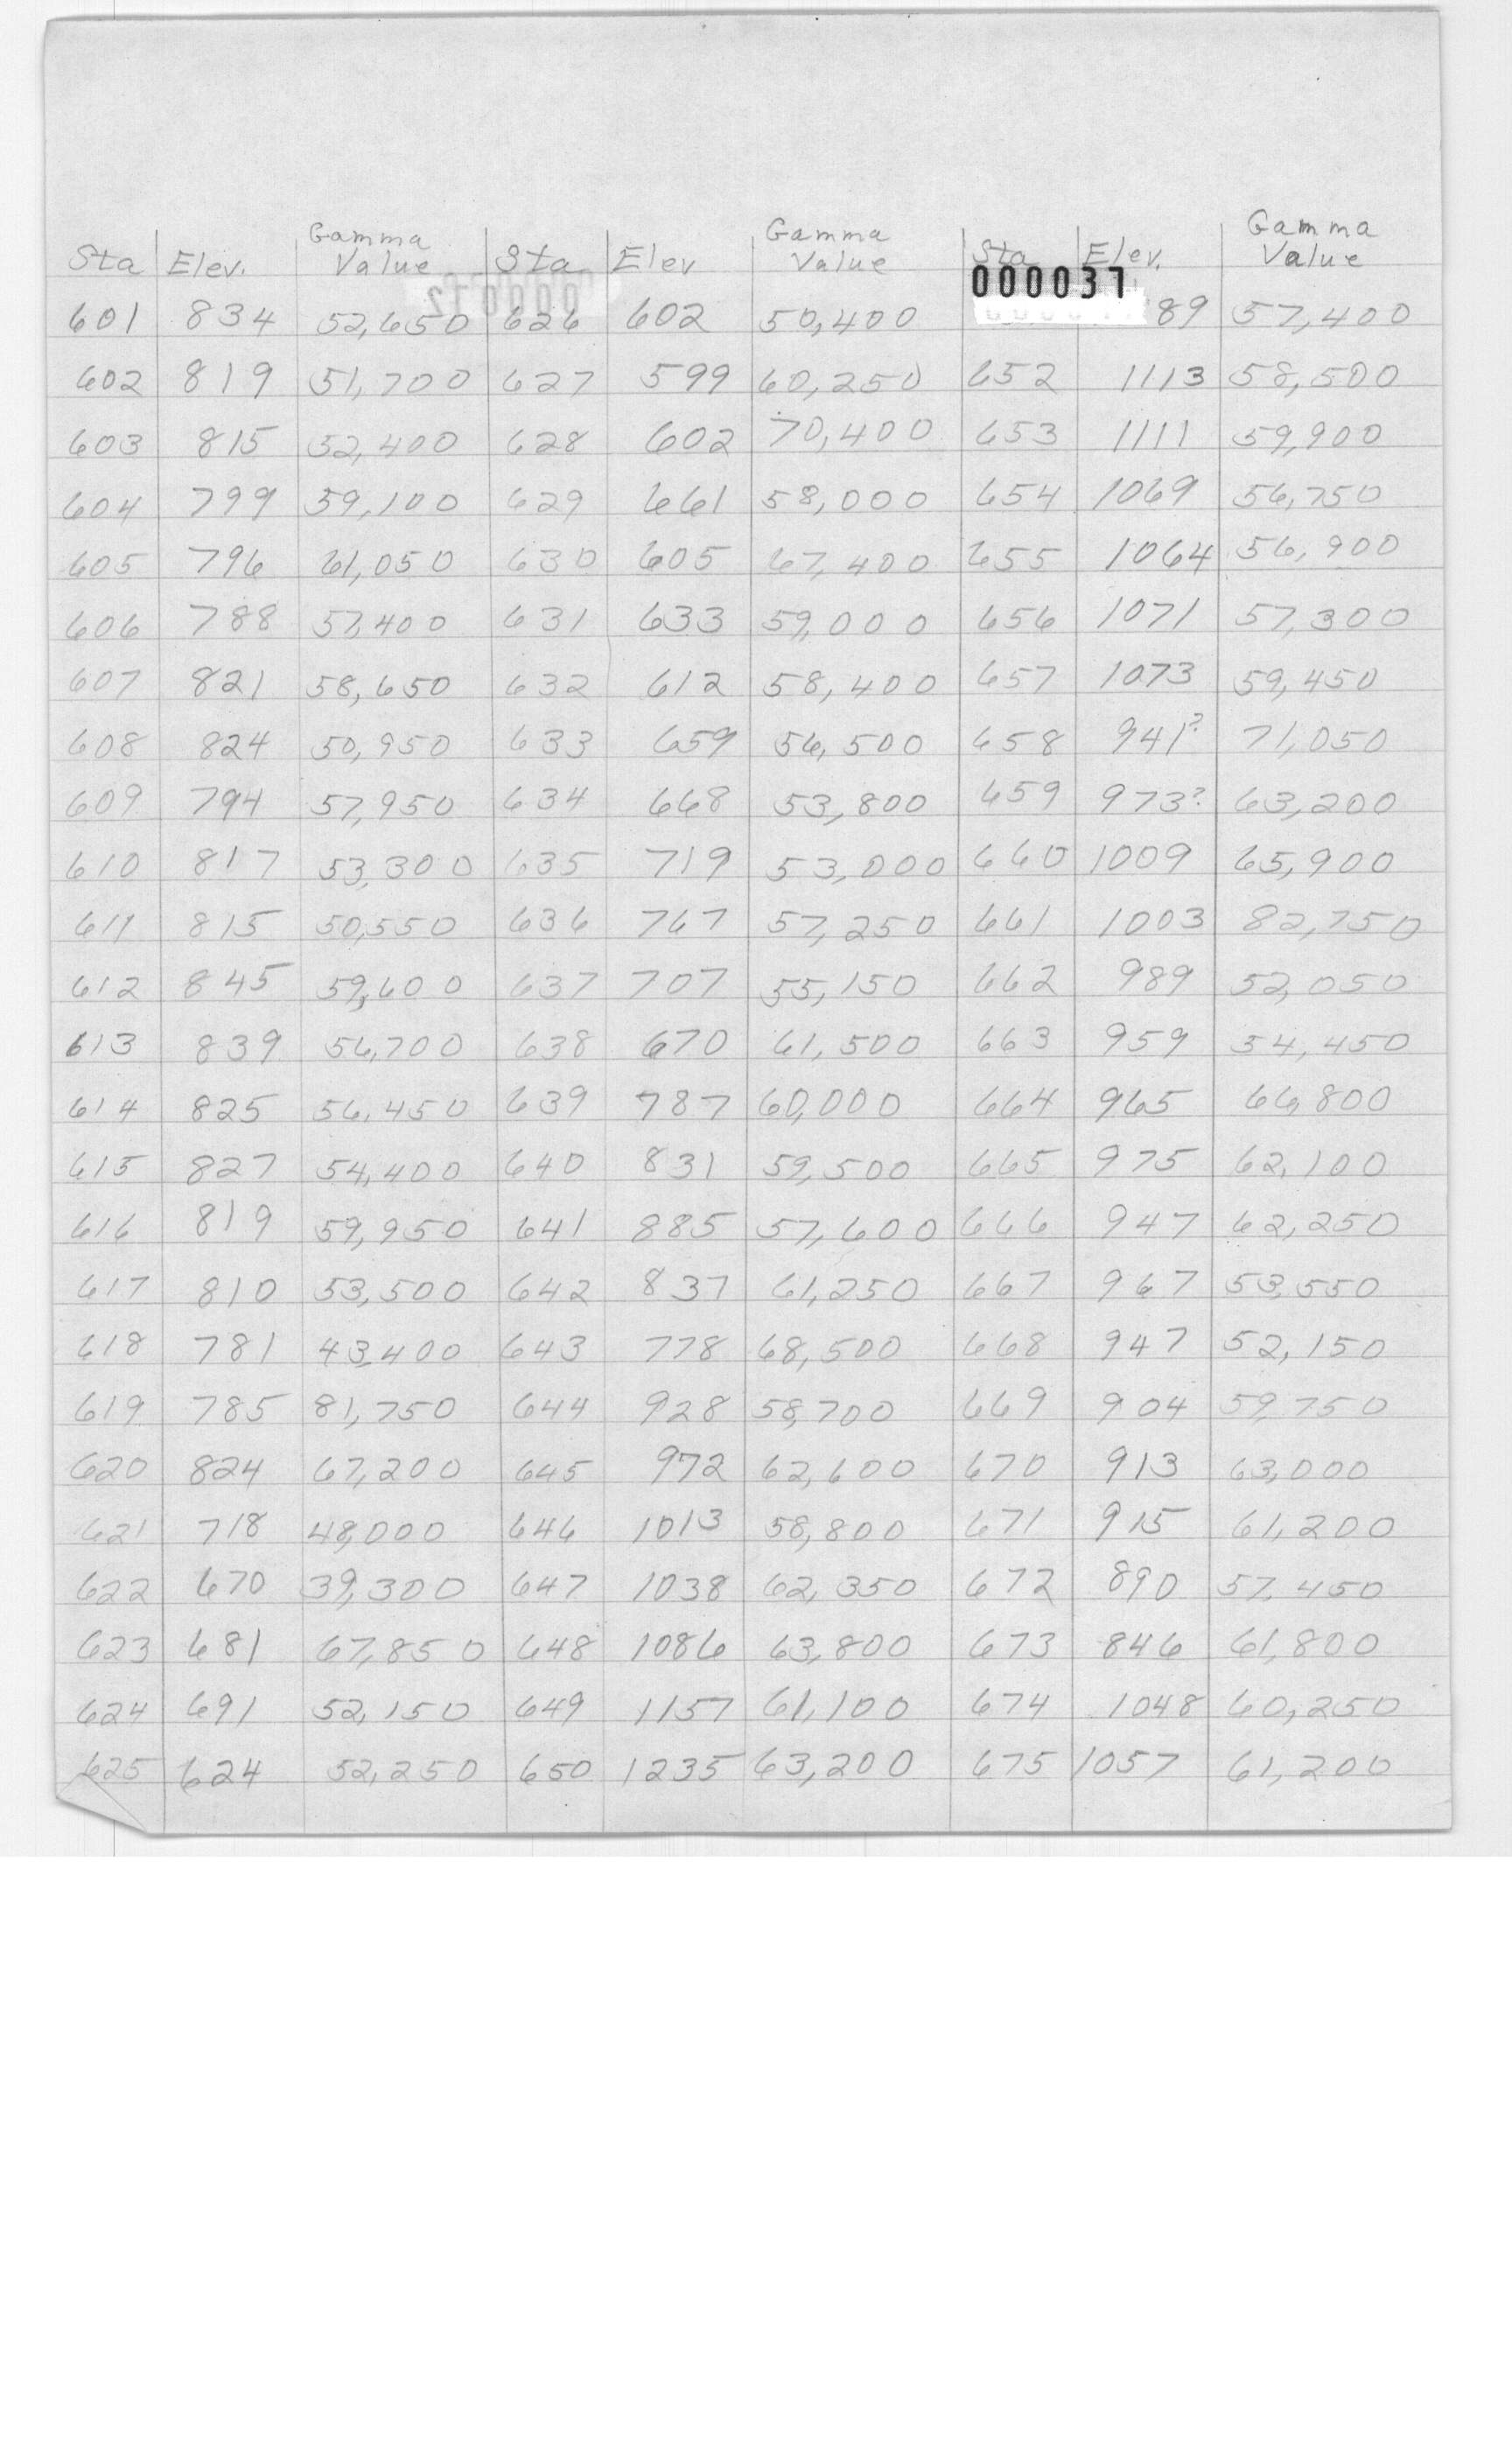 Gamma Gamma Gamma
Sta Elev. Value Sta Elev Value Sta Elev. Value
000037
601 834 52,650 626 602 50,400 89 57,400
602 819 51,700 627 599 60,250 652 1113 58,500
603 815 52,400 628 602 70,400 653 1111 59,900
604 799 59,100 629 661 58,000 654 1069 56,750
605 796 61,050 630 605 67,400 655 1064 56,900
606 788 57,400 631 633 59,000 656 1071 57,300
607 821 58,650 632 612 58,400 657 1073 59,450
608 824 50,950 633 659 56,500 658 941? 71,050
609 794 57,950 634 668 53,800 659 973? 63,200
610 817 53,300 635 719 53,000 660 1009 65,900
611 815 50,550 636 767 57,250 661 1003 82,750
612 845 59,600 637 707 55,150 662 989 52,050
613 839 56,700 638 670 61,500 663 959 54,450
614 825 56,450 639 787 60,000 664 965 66,800
615 827 54,400 640 831 59,500 665 975 62,100
616 819 59,950 641 885 57,600 666 947 62,250
617 810 53,500 642 837 61,250 667 967 53,550
618 781 43,400 643 778 68,500 668 947 52,150
619 785 81,750 644 928 58,700 669 904 59,750
620 824 67,200 645 972 62,600 670 913 63,000
621 718 48,000 646 1013 58,800 671 915 61,200
622 670 39,300 647 1038 62,350 672 890 57,450
623 681 67,850 648 1086 63,800 673 846 61,800
624 691 52,150 649 1157 61,100 674 1048 60,250
625 624 52,250 650 1235 63,200 675 1057 61,200